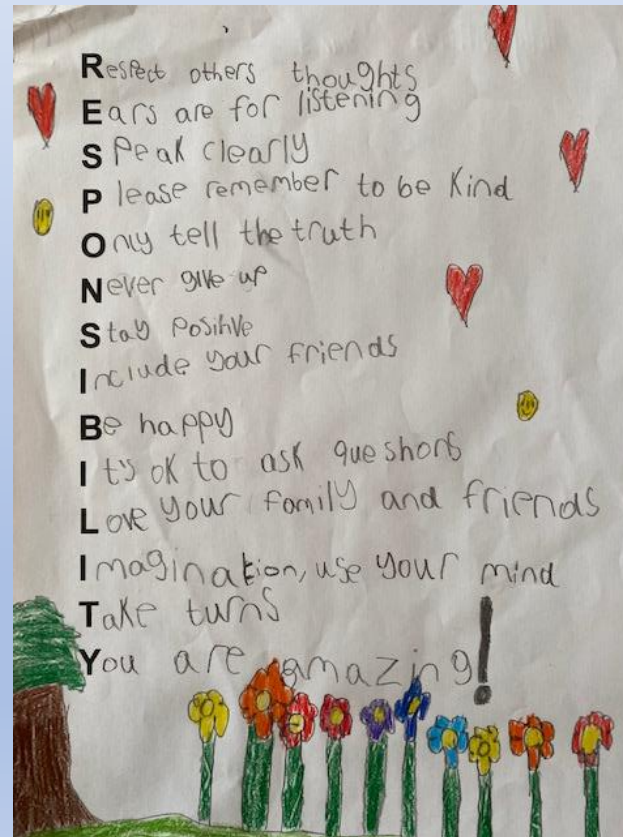 Respect others thoughts
Ears are for listening
Speak clearly
Please remember to be Kind
Only tell the truth
Never give up
Stay positive
Include your friends
Be happy
It's ok to ask questions
Love your family and friends
Imagination, use your mind
Take turns
You are amazing!